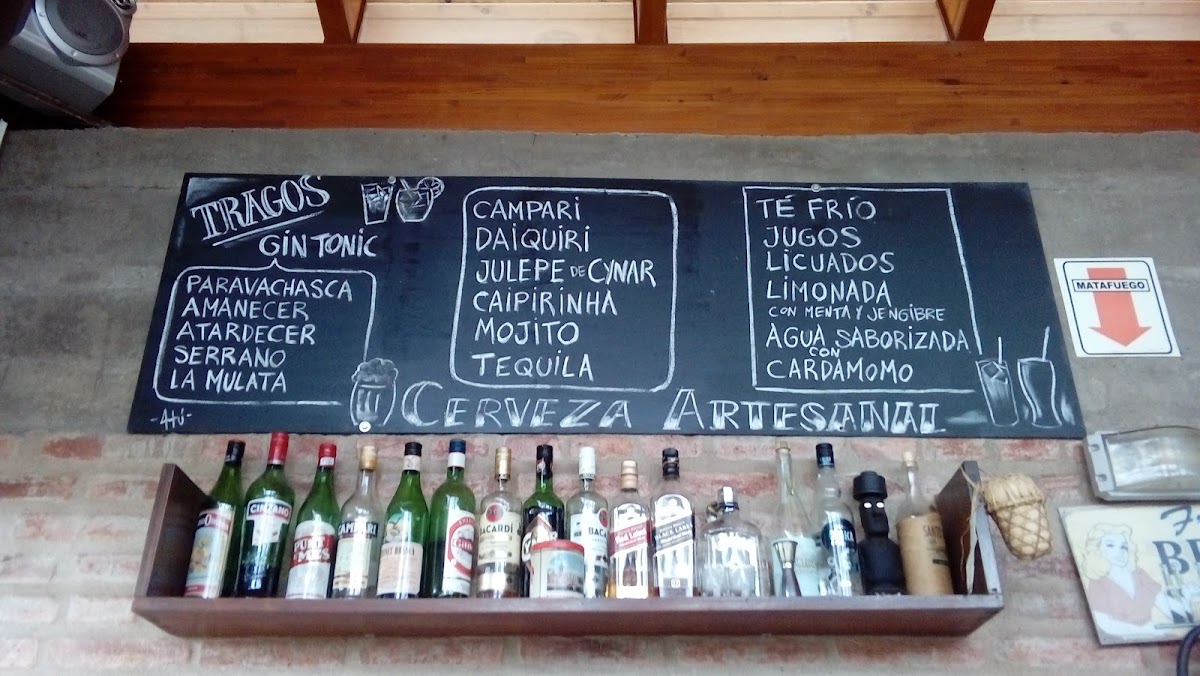 TRAGOS
GIN TONIC
PARAVACHASCA
AMANECER
ATARDECER
SERRANO
LA MULATA
-Atú-
CAMPARI
DAIQUIRI
JULEPE DE CYNAR
CAIPIRINHA
MOJITO
TEQUILA
TÉ FRÍO
JUGOS
LICUADOS
LIMONADA
CON MENTA Y JENGIBRE
AGUA SABORIZADA
CON
CARDAMOMO
CERVEZA ARTESANAL
MATAFUEGO
CINZANO
PUNT E MES
BACARDÍ
Red Label
BLACK LABEL